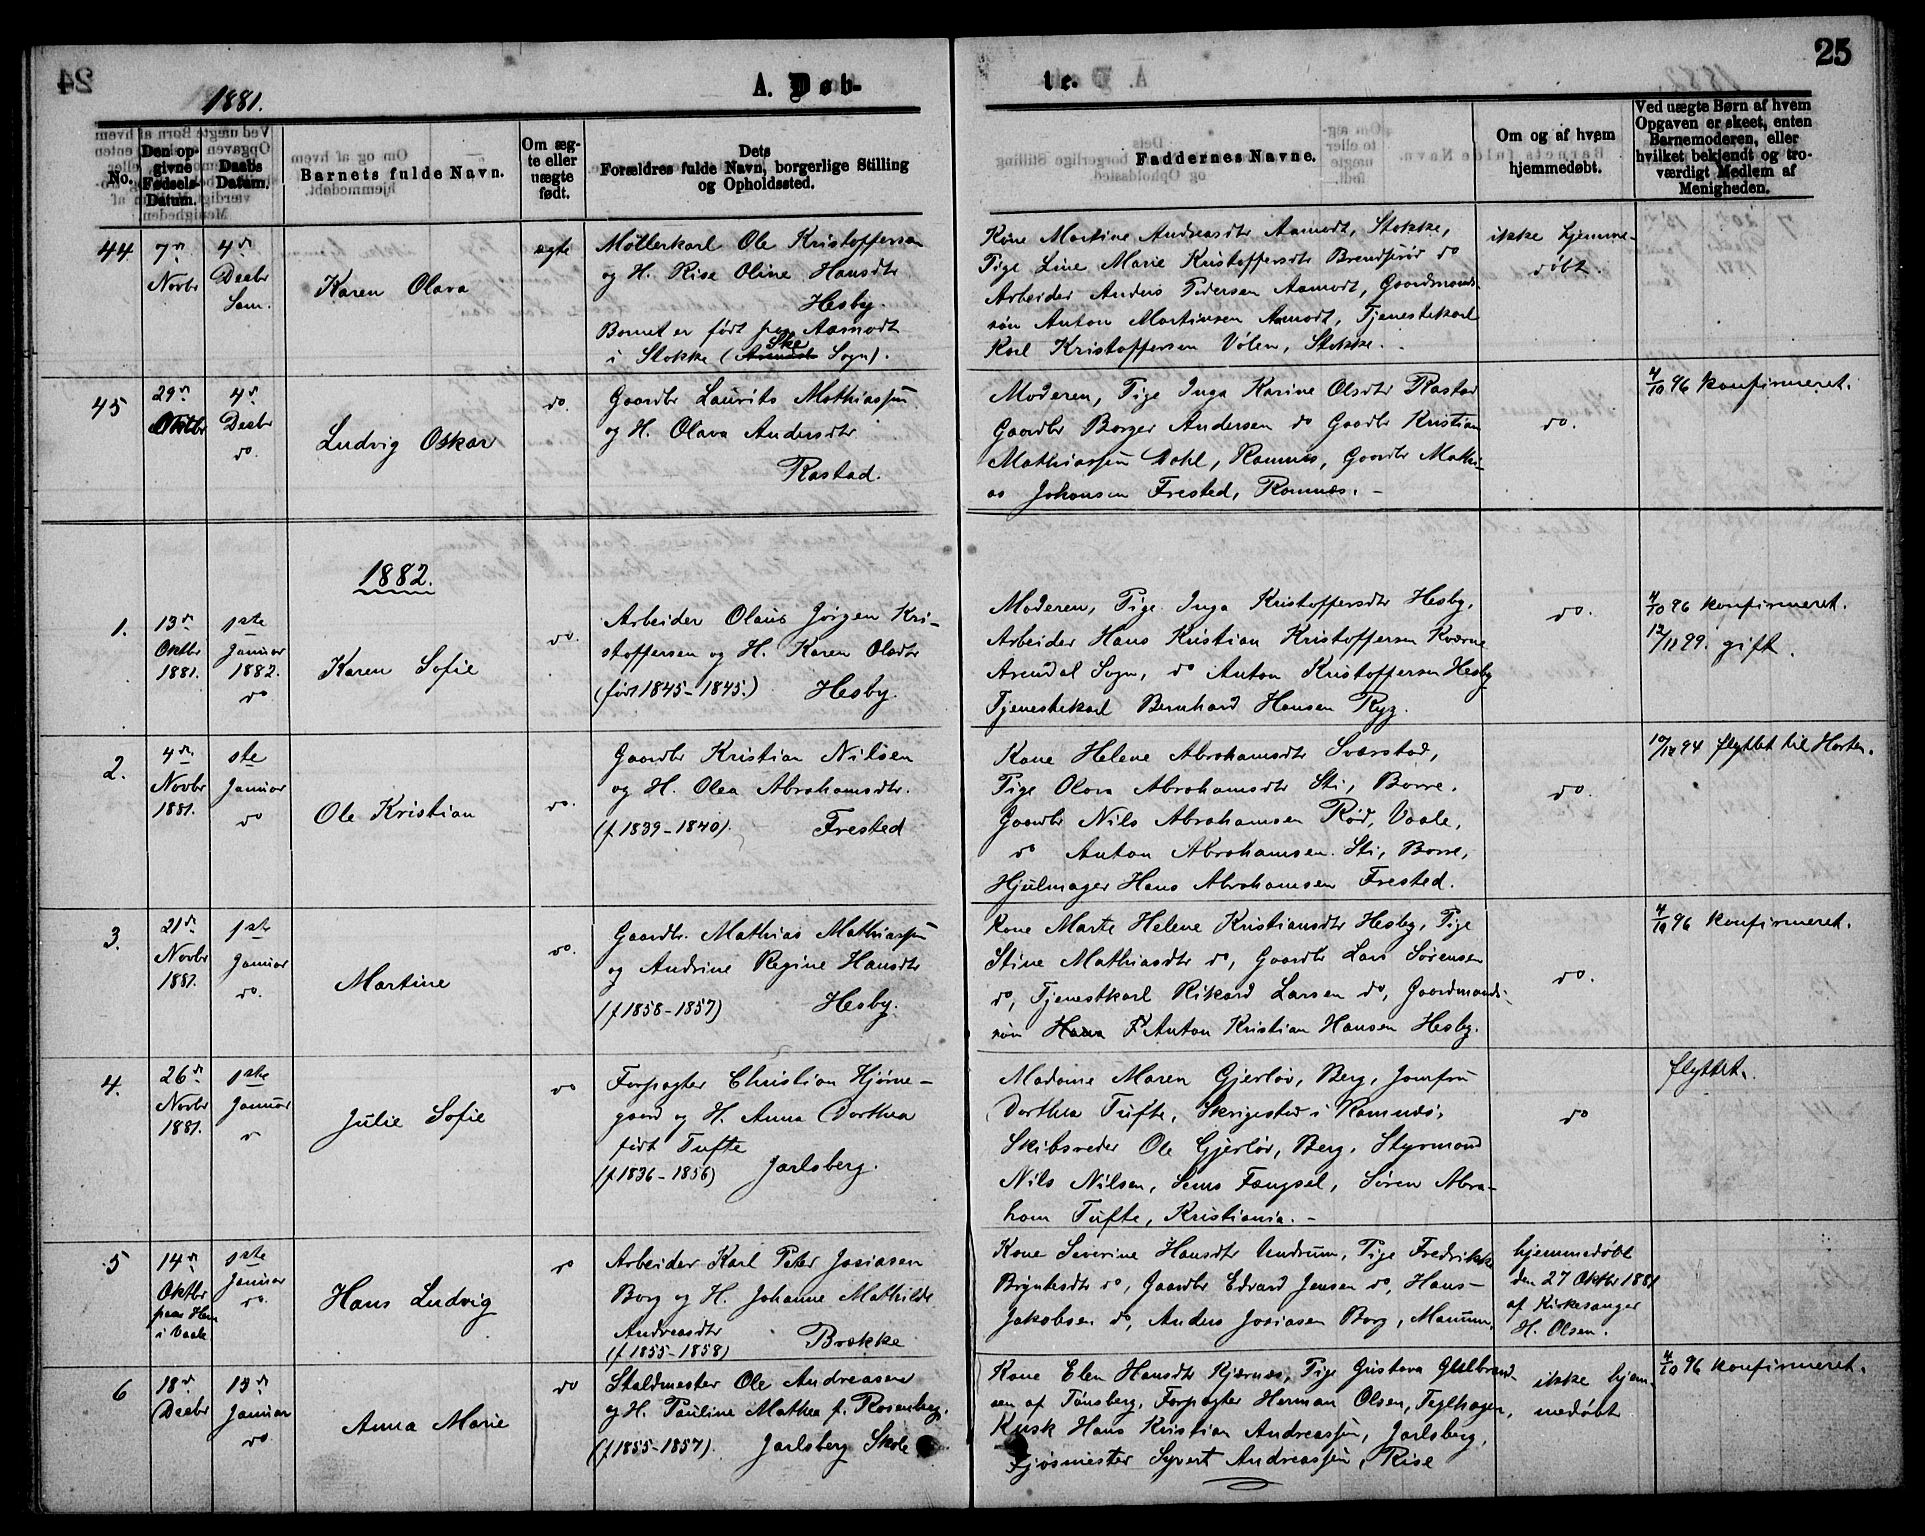 25
1881.
A. Døb-
te.
No.
Den opgivne Fødsels-Datum.
Daabs Datum.
Barnets fulde Navn.
Om ægte eller uægte født.
Dets Forældres fulde Navn, borgerlige Stilling og Opholdssted.
Faddernes Navne.
Om og af hvem hjemmedøbt.
Ved uægte Børn af hvem Opgaven er skeet, enten Barnemoderen, eller hvilket bekjendt og troværdigt Medlem af Menigheden.
44
7de
Novbr
4de
Decbr
Sem.
Karen Olava
ægte
Møllerkarl Ole Kristoffersen
og H. Risa Oline Hansdtr
Hesby.
Barnet er født paa Aamodt
i Stokke (Ske Sogn).
Kone Martine Andreasdtr Aamodt, Stokke,
Pige Line Marie Kristoffersdtr Brendsrød do
Arbeider Anders Pedersen Aamodt, Gaardmands-
søn Anton Martinsen Aamodt, Tjenestekarl
Karl Kristoffersen Vølen, Stokke. -
ikke hjemme-
døbt.
45
29de
Oktbr
4de
Decbr
do.
Ludvig Oskar
do.
Gaardbr Laurits Mathiassen
og H. Olava Andersdtr
Rastad.
Moderen, Pige Inga Karine Olsdtr Rastad
Gaardbr Borger Andersen do Gaardbr Kristian
Mathiassen Dahl, Ramnes, Gaardbr Mathi-
as Johansen Frested, Ramnes. -
do.
4/10 96 konfirmeret.
1882.
1.
13de
Oktbr
1881.
1ste
Januar
1882.
do
Karen Sofie
do.
Arbeider Olaus Jørgen Kri-
stoffersen og H. Karen Olsdtr
(født 1845-1845.) Hesby.
Moderen, Pige Inga Kristoffersdtr Hesby,
Arbeider Hans Kristian Kristoffersen Kværne
Arendal Sogn, do Anton Kristoffersen Hesby
Tjenestekarl Bernhard Hansen Ryg.
do.
4/10 96 konfirmeret.
12/11 99. gift.
2.
4de
Novbr
1881.
ste
Januar
do
Ole Kristian
do.
Gaardbr Kristian Nilsen
og H. Olea Abrahamsdtr.
(f. 1839-1840). Frested
Kone Helene Abrahamsdtr Sværstad,
Pige Olava Abrahamsdtr Sti, Borre.
Gaardbr Nils Abrahamsen Rød, Vaale,
do Anton Abrahamsen. Sti, Borre,
Hjulmager Hans Abrahamsen Frested.
do.
10/10 94 flyttet til Horten.
3.
21de
Novbr
1881.
1ste
Januar
do.
Martine
do.
Gaardbr. Mathias Mathiassen
og Andrine Regine Hansdtr
(f. 1858-1857) Hesby.
Kone Marte Helene Kristiansdtr Hesby, Pige
Stine Mathiasdtr do, Gaardbr Lars Sørensen
do, Tjenestkarl Rikard Larsen do, Gaardmands-
søn Anton Kristian Hansen Hesby.
do.
4/10 96 konfirmeret.
4.
26de
Novbr
1881.
1ste
Januar
Julie Sofie
do
Forpagter Christian Hjørne-
gaard og H. Anna Dorthea
født Tufte
(f. 1836-1856) Jarlsberg.
Madame Maren Gjerløv, Berg, Jomfru
Dorthea Tufte, Skrigestad i Ramnes,
Skibsreder Ole Gjerløv, Berg, Styrmand
Nils Nilsen, Sems Fængsel, Søren Abra-
ham Tufte, Kristiania. -
do
flyttet.
5
14de
Oktbr
paa Hem
i Vaale
1ste
Januar
do.
Hans Ludvig
do
Arbeider Karl Peter Josiasen
Borg og H. Johanne Mathilde
Andreasdtr
(f. 1855-1858) Brække
Kone Severine Hansdtr Undrum, Pige Fredrikke
Bryntesdtr do, Gaardbr Edvard Jensen do, Hans
Jakobsen do, Anders Josiasen Borg, Manum.
hjemmedøbt
den 27 Oktbr 1881
af Kirkesanger
H. Olsen.
6
18de
Decbr
13de
Januar
do.
Anna Marie
do
Staldmester Ole Andreasen
og H. Pauline Mathea f. Rosenberg.
(f. 1855-1857). Jarlsberg Skole
Kone Elen Hansdtr Kjærnes, Pige Gustava Gulbrand-
sen af Tønsberg, Forpagter Herman Olsen, Teglhagen,
Kusk Hans Kristian Andreassen, Jarlsberg,
Fjøsmester Syvert Andreassen, Rise
ikke hjem-
medøbt
4/10 96 konfirmeret.